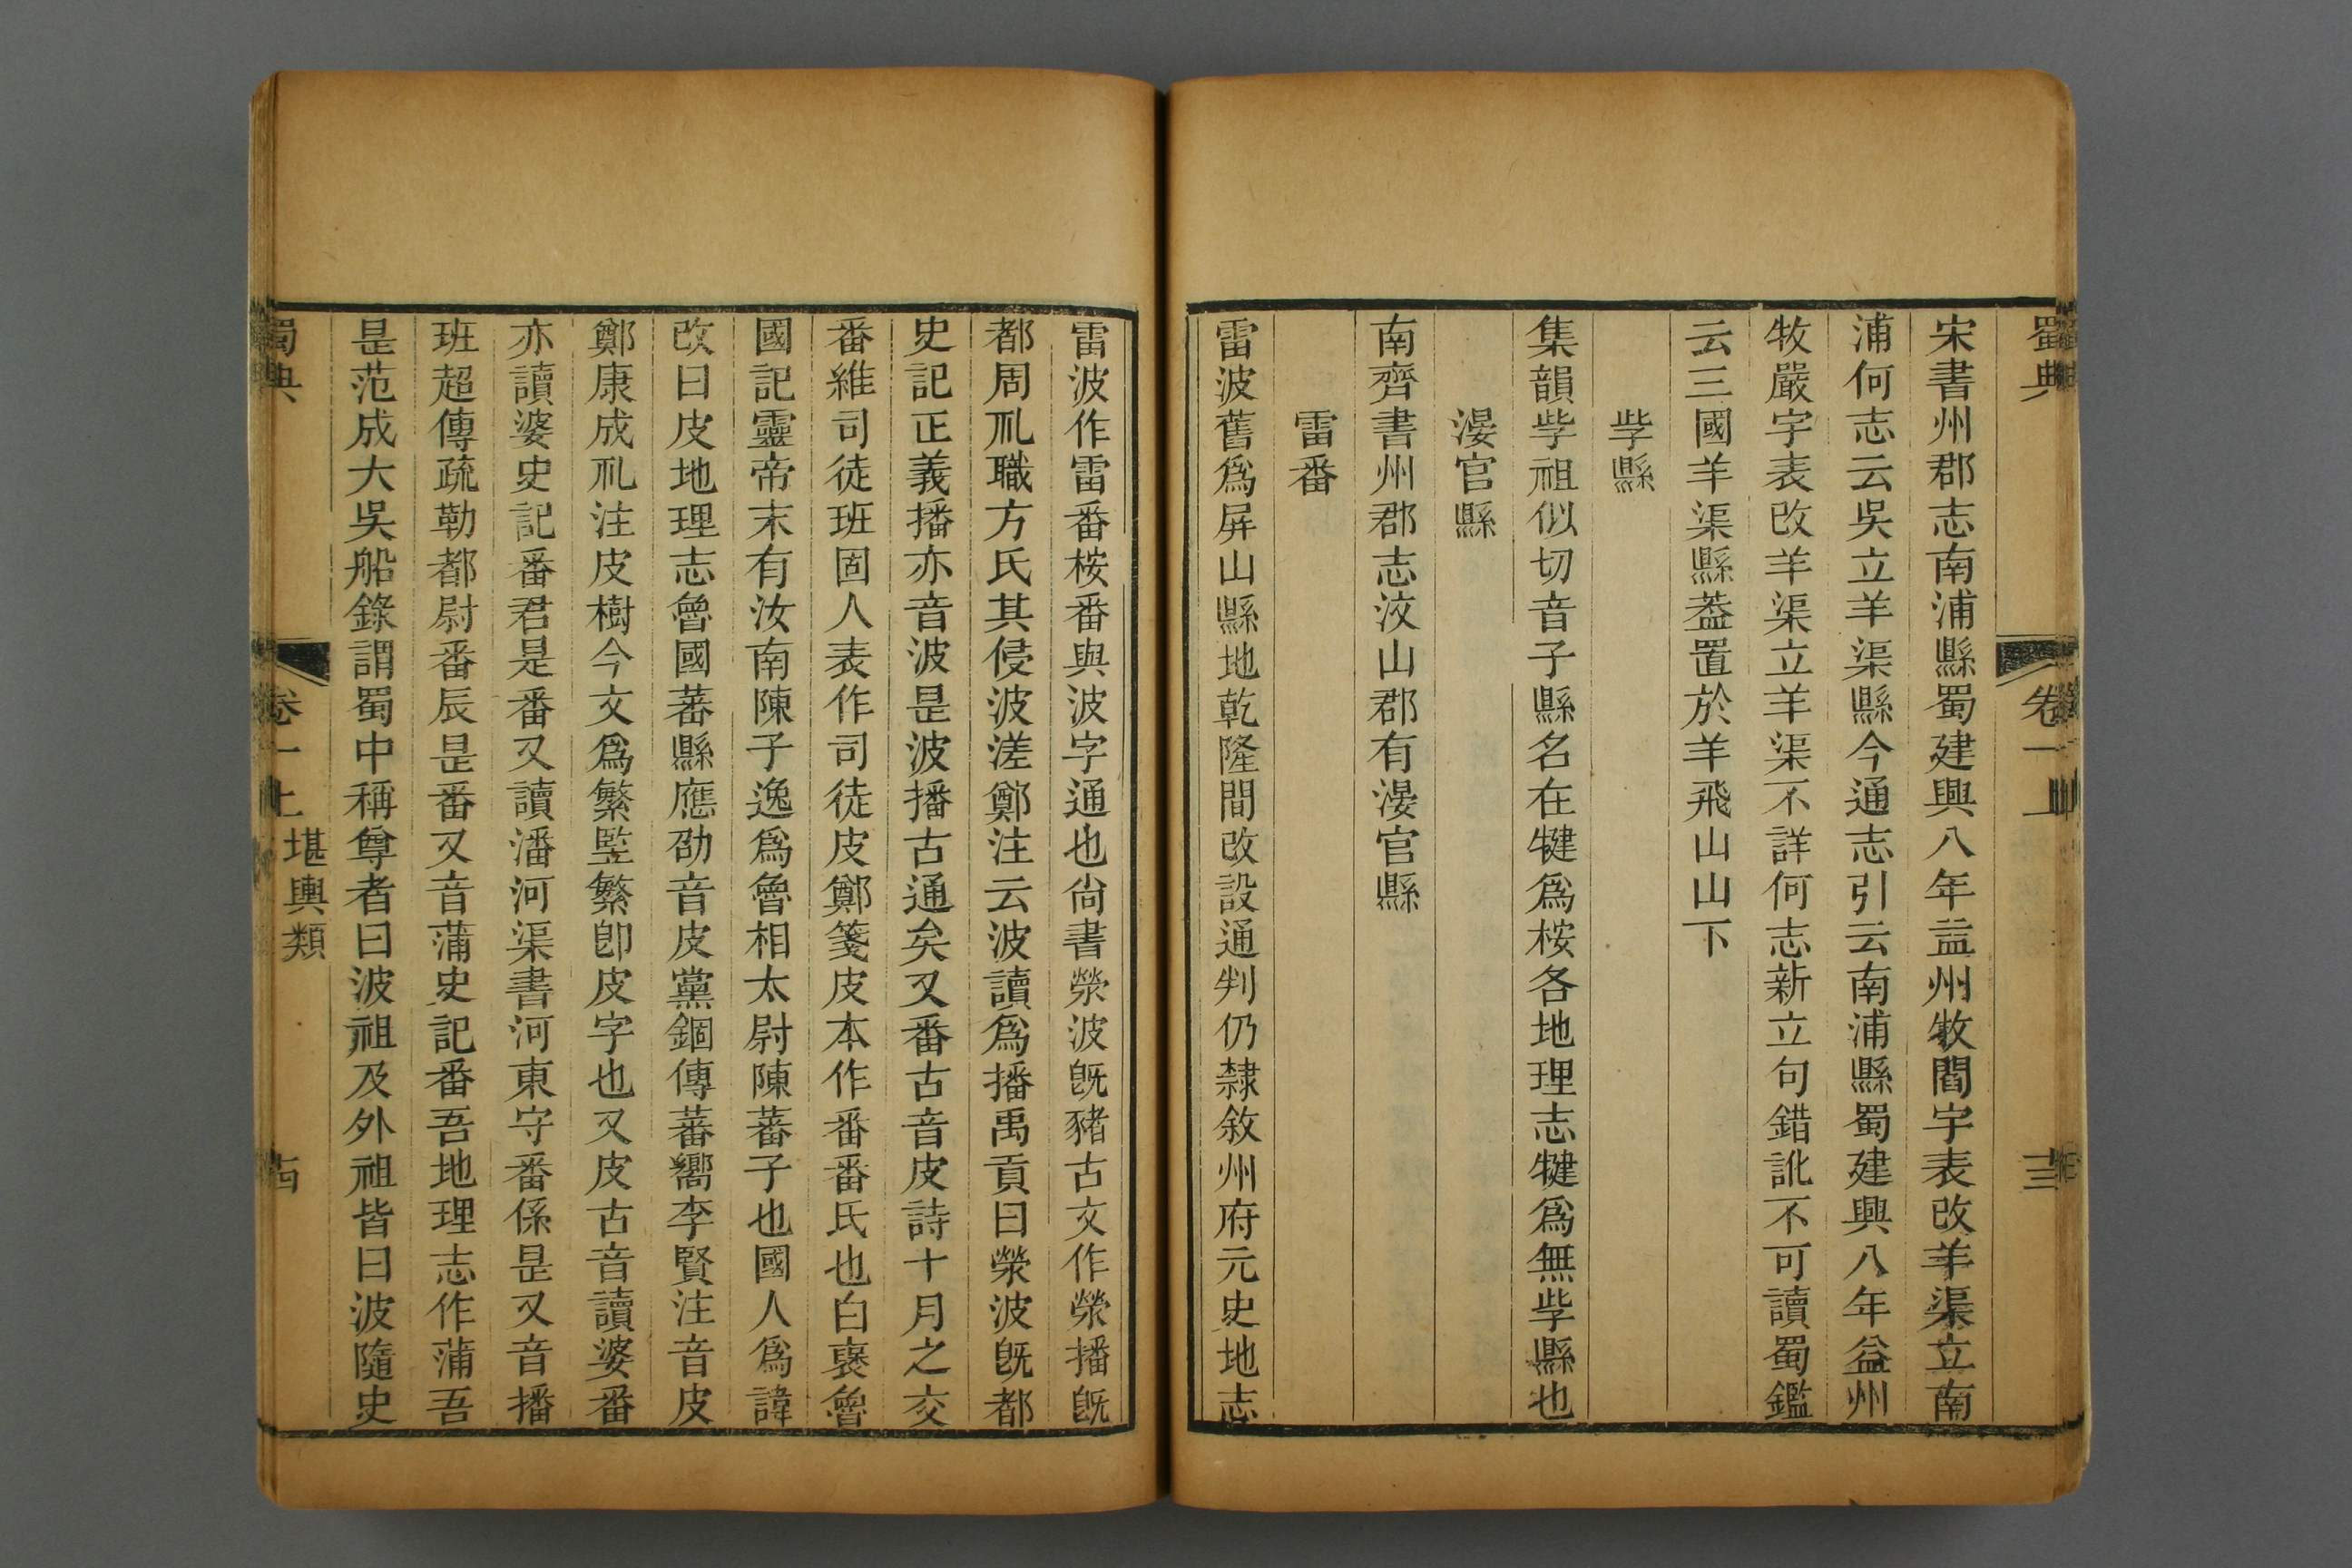 蜀典 卷一上 十三
宋書州郡志南浦縣蜀建興八年益州牧閻宇表改羊渠立南
浦何志云吳立羊渠縣今通志引云南浦縣蜀建興八年益州
牧嚴宇表改羊渠立羊渠不詳何志新立句錯訛不可讀蜀鑑
云三國羊渠縣葢置於羊飛山山下
㧘縣
集韻㧘祖似切音子縣名在犍爲桉各地理志犍爲無㧘縣也
漫官縣
南齊書州郡志汶山郡有漫官縣
雷番
雷波舊爲屏山縣地乾隆間改設通判仍隸敘州府元史地志
雷波作雷番桉番與波字通也尙書滎波旣豬古文作滎播旣
都周礼職方氏其侵波溠鄭注云波讀爲播禹貢曰滎波旣都
史記正義播亦音波是波播古通矣又番古音皮詩十月之交
番維司徒班固人表作司徒皮鄭箋皮本作番番氏也白裒魯
國記靈帝末有汝南陳子逸爲魯相太尉陳蕃子也國人爲諱
改曰皮地理志魯國蕃縣應劭音皮黨錮傳蕃嚮李賢注音皮
鄭康成礼注皮樹今文爲繁竪繁卽皮字也又皮古音讀婆番
亦讀婆史記番君是番又讀潘河渠書河東守番係是又音播
班超傳疏勒都尉番辰是番又音蒲史記番吾地理志作蒲吾
是范成大吳船錄謂蜀中稱尊者曰波祖及外祖皆曰波隨史
蜀典 卷一上 堪輿類 十四